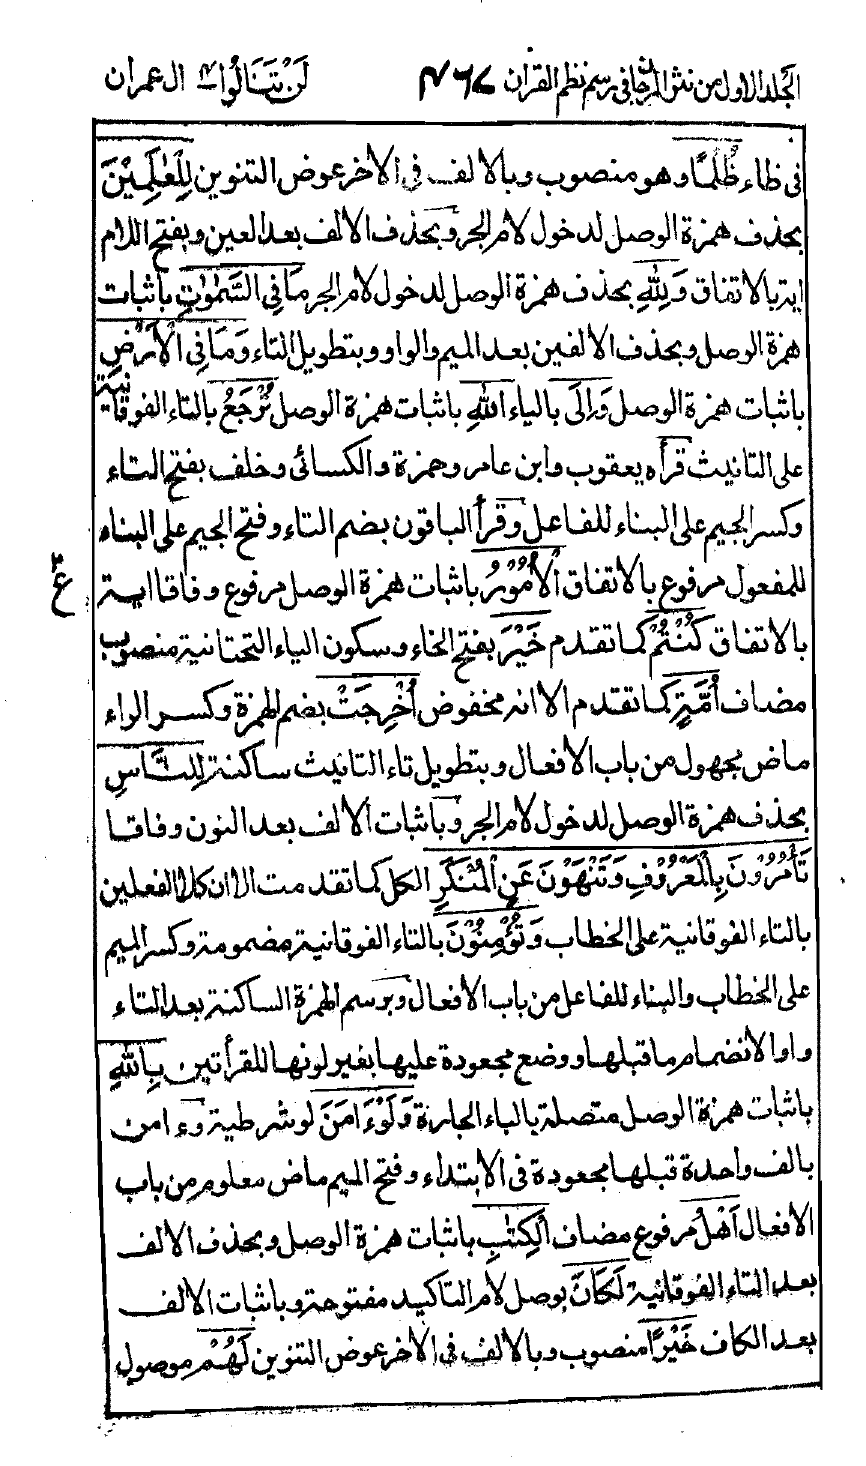 الجلد الاول من نثر المرجان فى رسم نظم القران ٤٦٧ لَنْ تَنَالُوا ٤ ال عمران
فى ظاء ظُلْمًا وهو منصوب وبالالف فى الاخر عوض التنوين لِلْعٰلَمِيْنَ
بحذف همزة الوصل لدخول لام الجر وبحذف الالف بعد العين وبفتح اللام
اية بالاتفاق وَلِلّٰهِ بحذف همزة الوصل لدخول لام الجر مَا فِي السَّمٰوٰتِ باثبات
همزة الوصل وبحذف الالفين بعد الميم والواو وبتطويل التاء وَمَا فِي الْاَرْضِ
باثبات همزة الوصل وَاِلَى بالياء اللّٰهِ باثبات همزة الوصل تُرْجَعُ بالتاء الفوقانية
على التانيث قرأه يعقوب وابن عامر وحمزة والكسائى وخلف بفتح التاء
وكسر الجيم على البناء للفاعل وقرأ الباقون بضم التاء وفتح الجيم على البناء
للمفعول مرفوع بالاتفاق الْاُمُوْرُ باثبات همزة الوصل مرفوع وفاقا اية
ع
بالاتفاق كُنْتُمْ كما تقدم خَيْرَ بفتح الخاء وسكون الياء التحتانية منصوب
مضاف اُمَّةٍ كما تقدم الا انه مخفوض اُخْرِجَتْ بضم الهمزة وكسر الراء
ماض مجهول من باب الافعال وبتطويل تاء التانيث ساكنة لِلنَّاسِ
بحذف همزة الوصل لدخول لام الجر وباثبات الالف بعد النون وفاقا
تَأْمُرُوْنَ بِالْمَعْرُوْفِ وَتَنْهَوْنَ عَنِ الْمُنْكَرِ الكل كما تقدمت الا ان كلا الفعلين
بالتاء الفوقانية على الخطاب وَتُؤْمِنُوْنَ بالتاء الفوقانية مضمومة وكسر الميم
على الخطاب والبناء للفاعل من باب الافعال وبرسم الهمزة الساكنة بعد التاء
واوا لانضمام ما قبلها ووضع مجعودة عليها بغير لونها للقرأتين بِاللّٰهِ
باثبات همزة الوصل متصلة بالباء الجارة وَلَوْءَامَنَ لو شرطية وءامن
بالف واحدة قبلها مجعودة فى الابتداء وفتح الميم ماض معلوم من باب
الافعال اَهْلُ مرفوع مضاف الْكِتٰبِ باثبات همزة الوصل وبحذف الالف
بعد التاء الفوقانية لَكَانَ بوصل لام التاكيد مفتوحة وباثبات الالف
بعد الكاف خَيْرًا منصوب وبالالف فى الاخر عوض التنوين لَهُمْ موصول